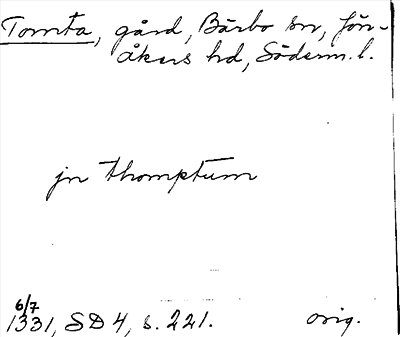 Tomta, gård, Bärbo sn, Jön-
åkers hd, Söderm. l.
jn thomptum
6/7
1331, SD 4, s. 221. orig.